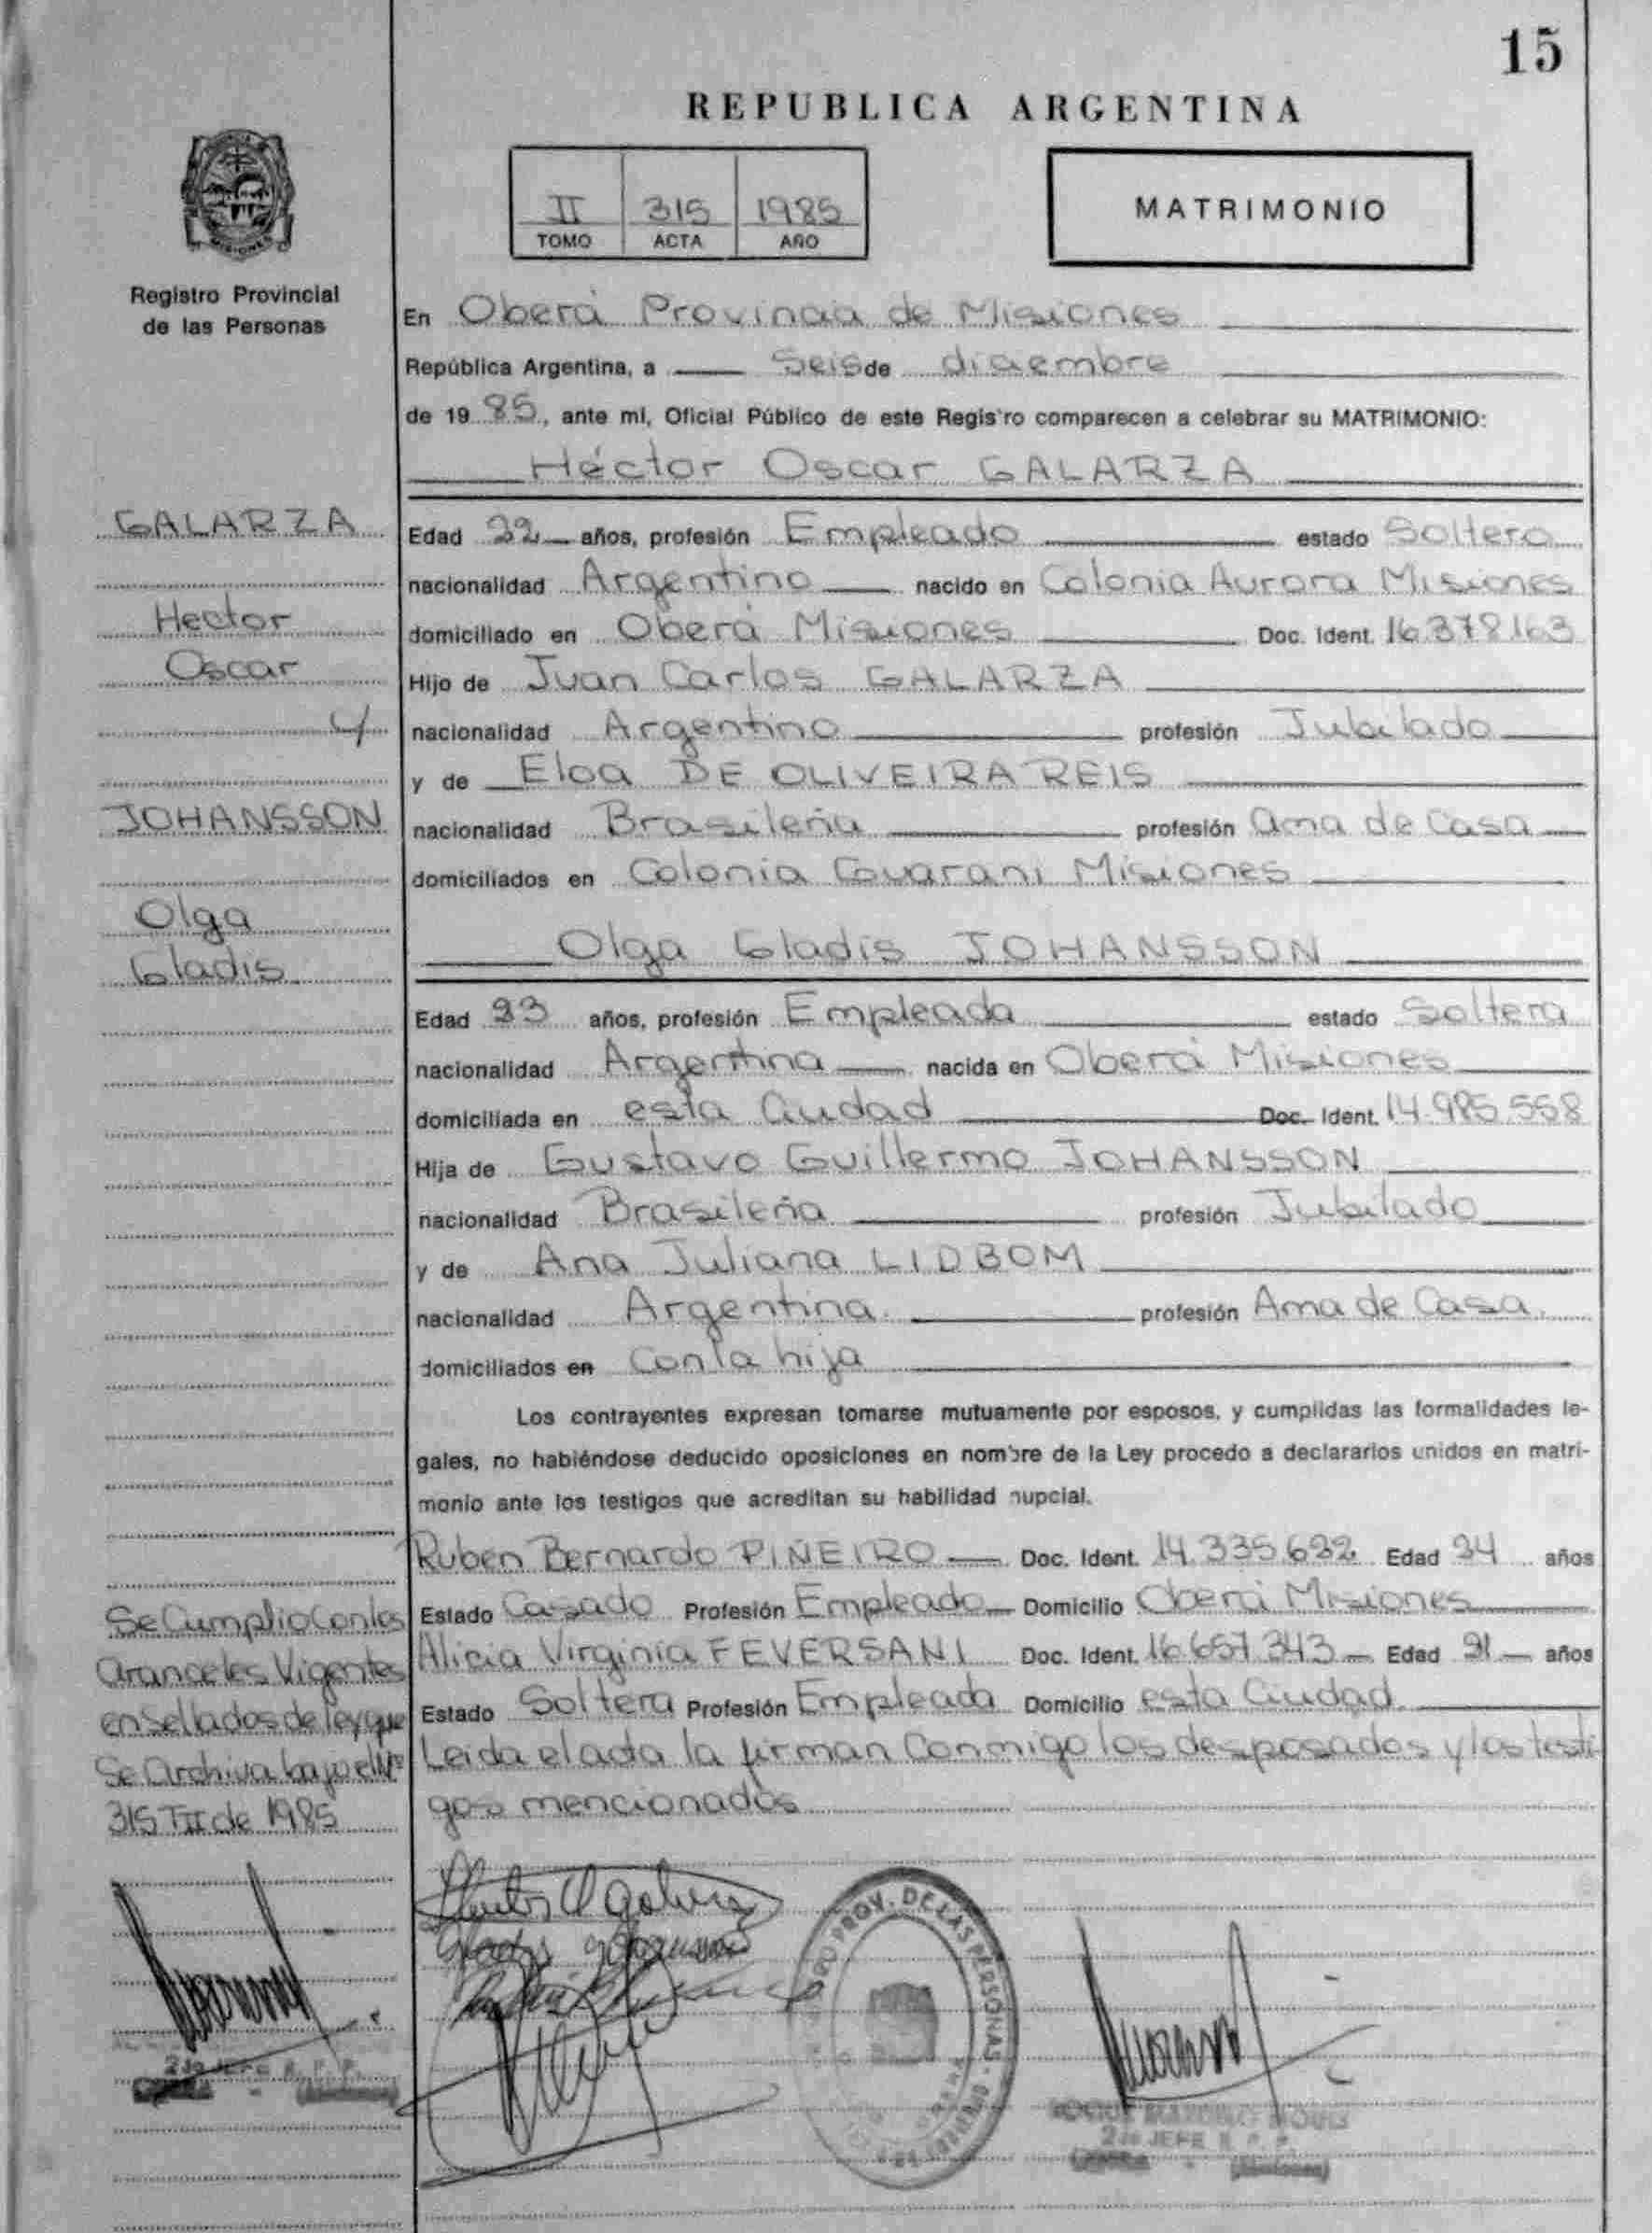 15
REPUBLICA ARGENTINA
II 315 1985
TOMO ACTA AÑO
MATRIMONIO
MISIONES
Registro Provincial
de las Personas
En Oberá Provincia de Misiones
República Argentina, a Seis de diciembre
de 19 85, ante mí, Oficial Público de este Registro comparecen a celebrar su MATRIMONIO:
Héctor Oscar GALARZA
Edad 22 años, profesión Empleado estado Soltero
nacionalidad Argentino nacido en Colonia Aurora Misiones
domiciliado en Oberá Misiones Doc. Ident. 16.378.163
Hijo de Juan Carlos GALARZA
nacionalidad Argentino profesión Jubilado
y de Eloa DE OLIVEIRA REIS
nacionalidad Brasileña profesión Ama de Casa
domiciliados en Colonia Guarani Misiones
Olga Gladis JOHANSSON
Edad 23 años, profesión Empleada estado Soltera
nacionalidad Argentina nacida en Oberá Misiones
domiciliada en esta Ciudad Doc. Ident. 14.985.558
Hija de Gustavo Guillermo JOHANSSON
nacionalidad Brasileña profesión Jubilado
y de Ana Juliana LIDBOM
nacionalidad Argentina profesión Ama de Casa
domiciliados en Con la hija
Los contrayentes expresan tomarse mutuamente por esposos, y cumplidas las formalidades le-
gales, no habiéndose deducido oposiciones en nombre de la Ley procedo a declararlos unidos en matri-
monio ante los testigos que acreditan su habilidad nupcial.
Ruben Bernardo PIÑEIRO Doc. Ident. 14.335.632 Edad 24 años
Estado Casado Profesión Empleado Domicilio Oberá Misiones
Alicia Virginia FEVERSANI Doc. Ident. 16.657.343 Edad 21 años
Estado Soltera Profesión Empleada Domicilio esta Ciudad
Leida el acta la firman Conmigo los desposados y los testi
gos mencionados
GALARZA
Hector
Oscar
y
JOHANSSON
Olga
Gladis
Se Cumplio Con los
aranceles Vigentes
en Sellados de ley que
Se Archiva bajo el Nº
315 TII de 1985
PROV. DE LAS PERSONAS
2do JEFE R. P. P.
2do JEFE R. P. P.
(Misiones)